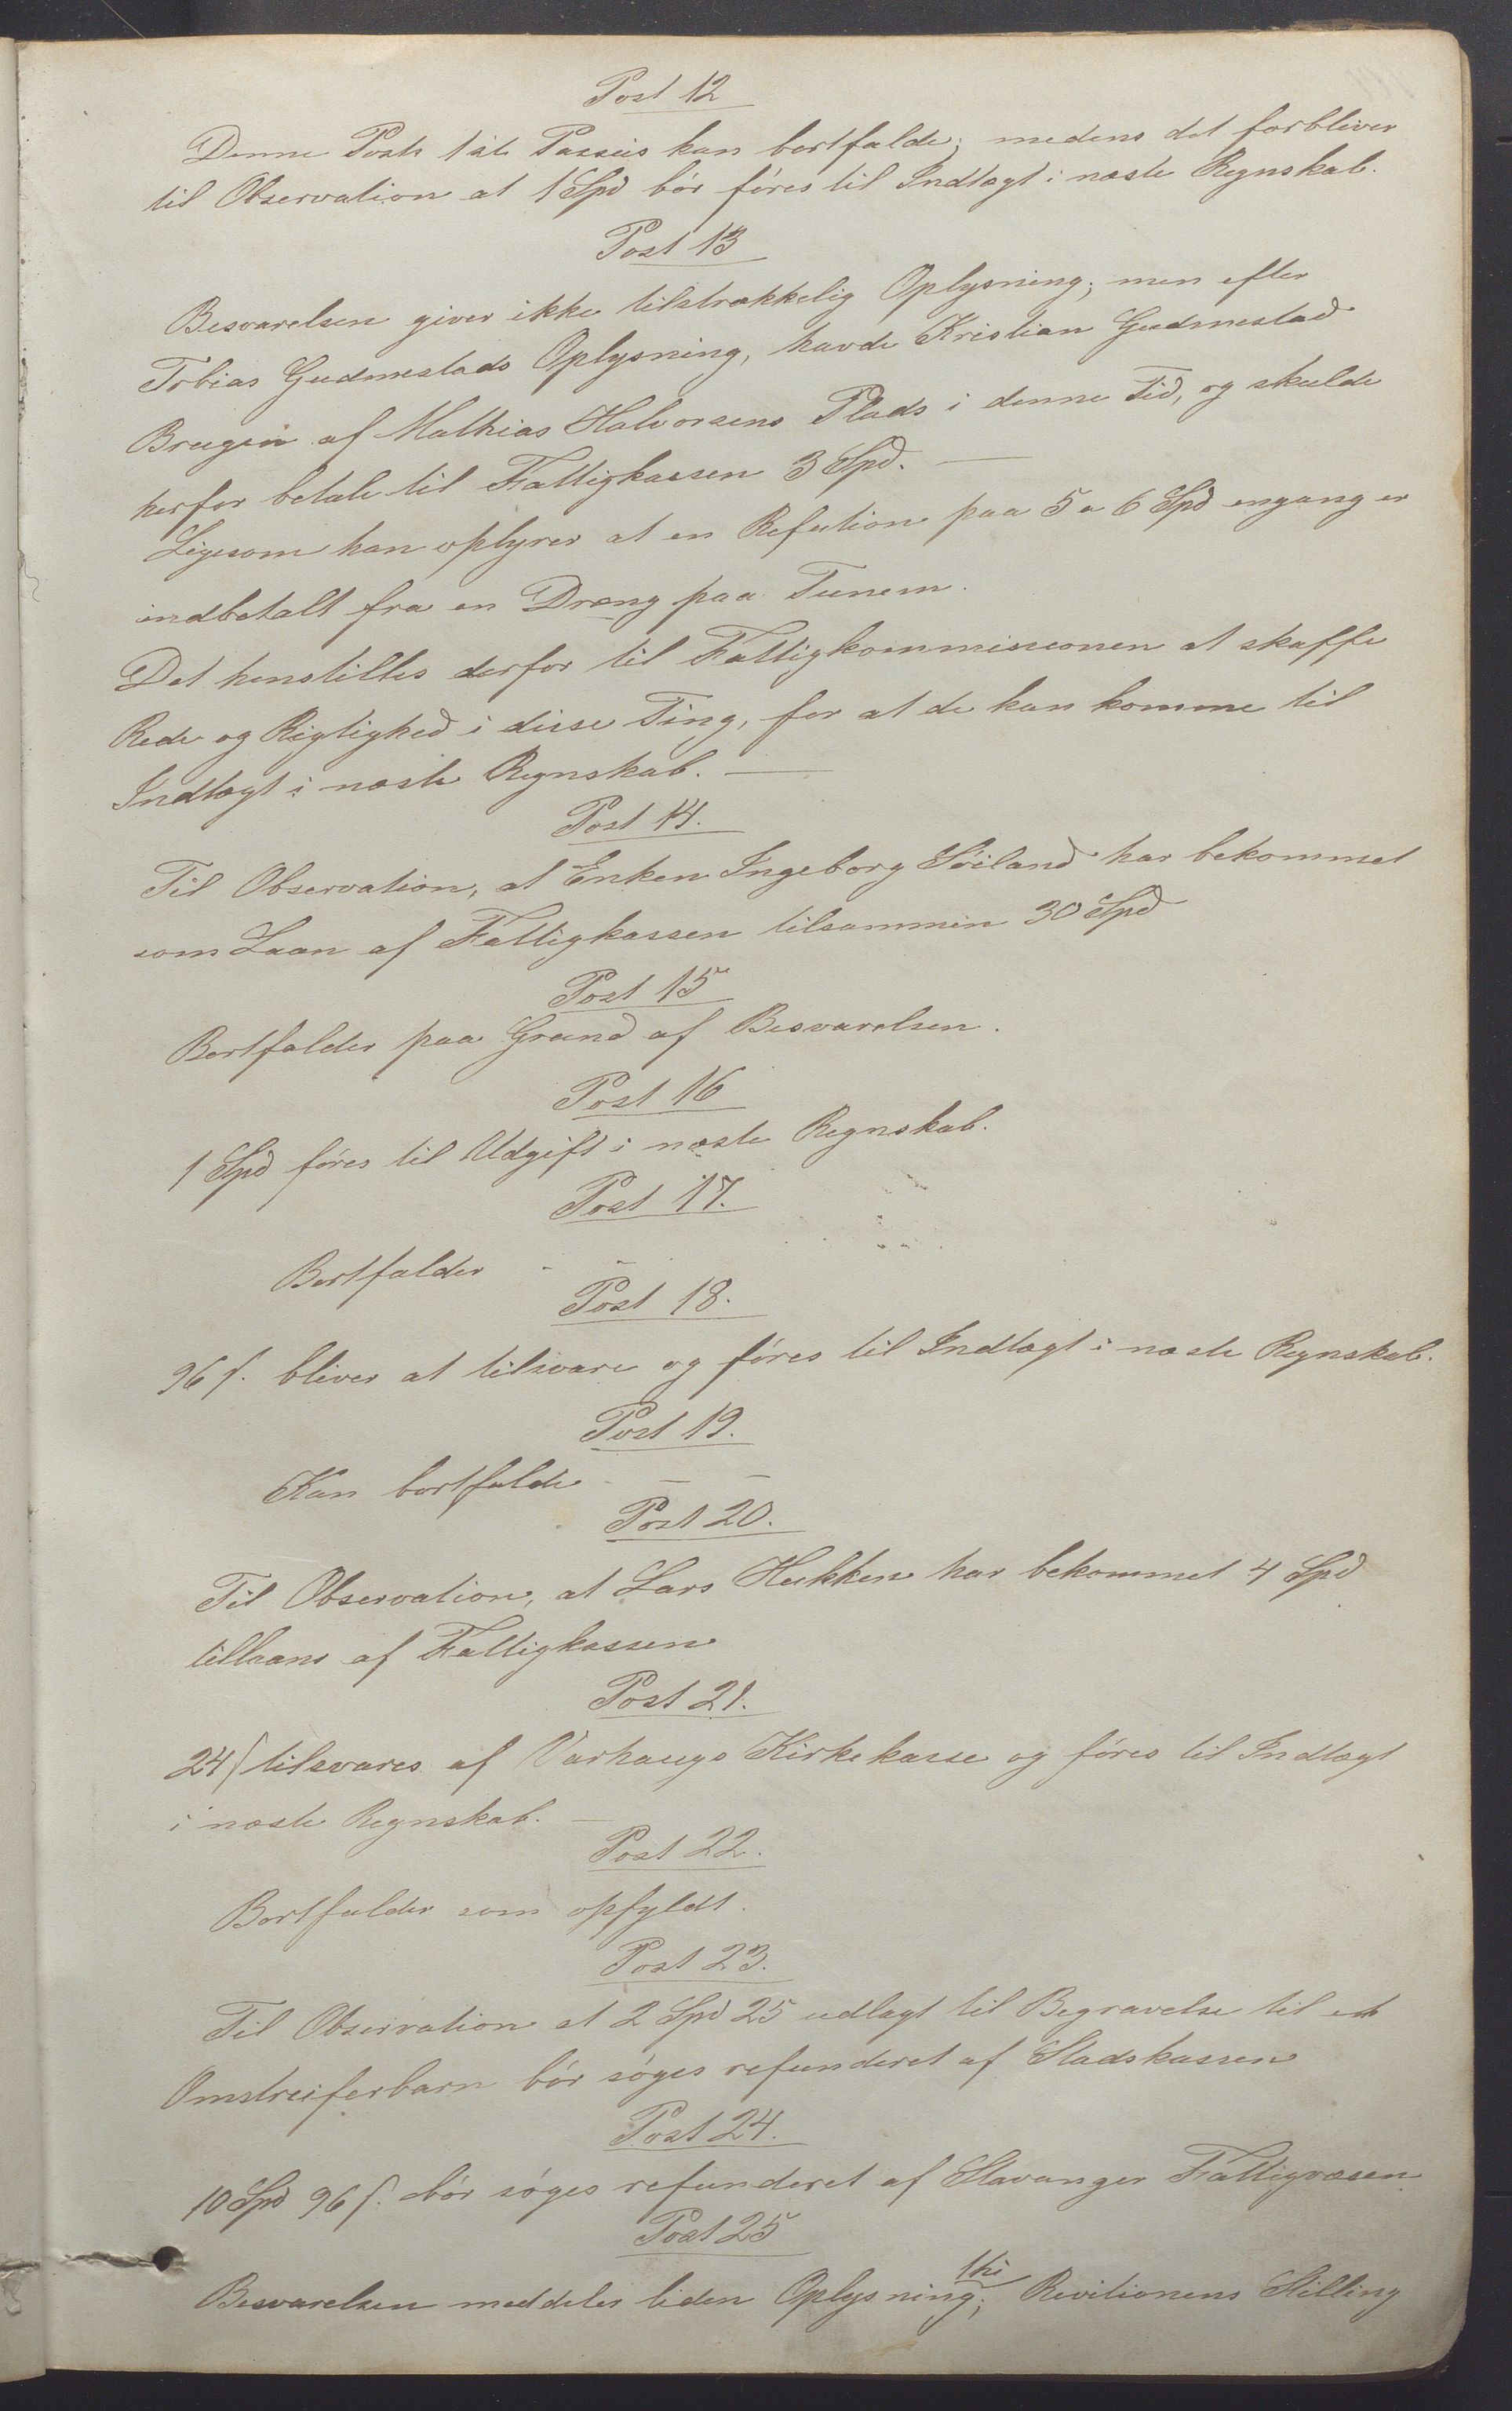 Post 12
Denne Posts 1ste Passus kan bortfalde; medens det forbliver
til Observation at 1 Spd bör föres til Indtægt i næste Regnskab.
Post 13
Besvarelsen giver ikke tilstrækkelig Oplysning; men efter
Tobias Gudmestads Oplysning, havde Kristian Gudmestad
Brugen af Mathias Halvorsens Plads i denne Tid, og skulde
herfor betale til Fattigkassen 3 Spd. —
Ligesom han oplyser at en Refution paa 5 a 6 Spd engang er
indbetalt fra en Dreng paa Tunem.
Det henstilles derfor til Fattigkommissionen at skaffe
Rede og Rigtighed i disse Ting, for at de kan komme til
Indtægt i næste Regnskab. —
Post 14.
Til Observation, at Enken Ingeborg Söiland har bekommet
som Laan af Fattigkassen tilsammen 30 Spd
Post 15
Bortfalder paa Grund af Besvarelsen.
Post 16
1 Spd föres til Udgift i næste Regnskab.
Post 17.
Bortfalder - -
Post 18.
96 ſ. bliver at tilsvare og föres til Indtægt i næste Regnskab.
Post 19.
Kan bortfalde - — —
Post 20.
Til Observation, at Lars Hukken har bekommet 4 Spd
tillaans af Fattigkassen
Post 21.
24 ſ tilsvares af Varhaugs Kirkekasse og föres til Indtægt
i næste Regnskab. —
Post 22.
Bortfalder som opfyldt.
Post 23.
Til Observation at 2 Spd 25 udlagt til Begravelse til et
Omstreiferbarn bör söges refunderet af Stadskassen
Post 24.
10 Spd 96 ſ. bör söges refunderet af Stavanger Fattigvæsen
Post 25
Besvarelsen meddeler liden Oplysning; thi Revitionens Stilling